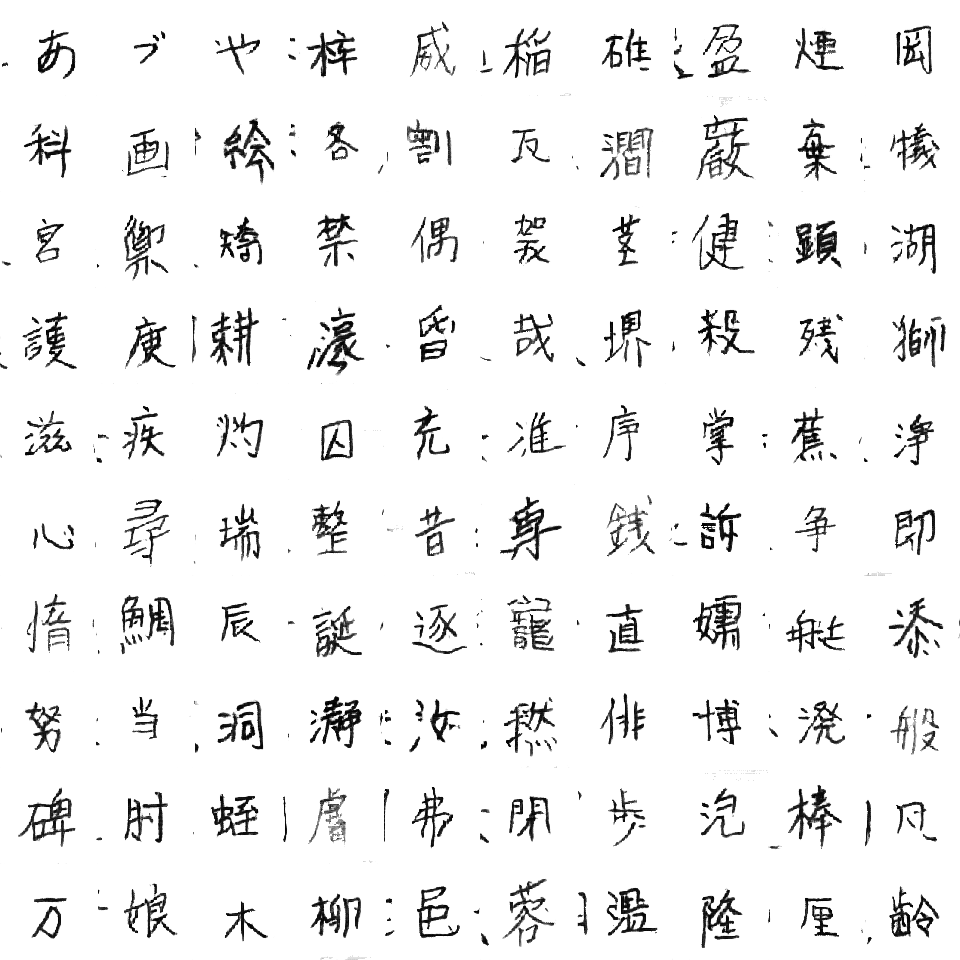 あづや梓威稲礁盈煙岡
科画絵各割瓦澗厳棄犠
宮禦矯禁偶袈茎健顕湖
護庚耕濠昏哉堺殺残獅
滋疾灼囚充准序掌蕉浄
心尋瑞整昔専銭訴争即
惰鯛辰誕逐寵直嬬艇添
努当洞瀞汝撚俳博溌般
碑肘蛭膚弗閉歩泡棒凡
万娘木柳邑蓉濫隆厘齢